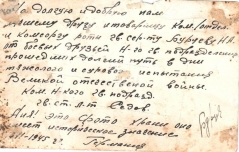 На долгую и добрую память
нашему другу и товарищу Ком.
и комсоргу роты гв. серж-ту Бурцеву Н.А.
от боевых друзей Н-го гв. подразделения
прошедших долгий путь в дни
тяжелого и сурового испытания
Великой отечественной войны.
Ком. Н-ского гв. подразд.
гв. ст. л-т Седов.
это фото храни оно
имеет историческое значение
1945 г. Германия